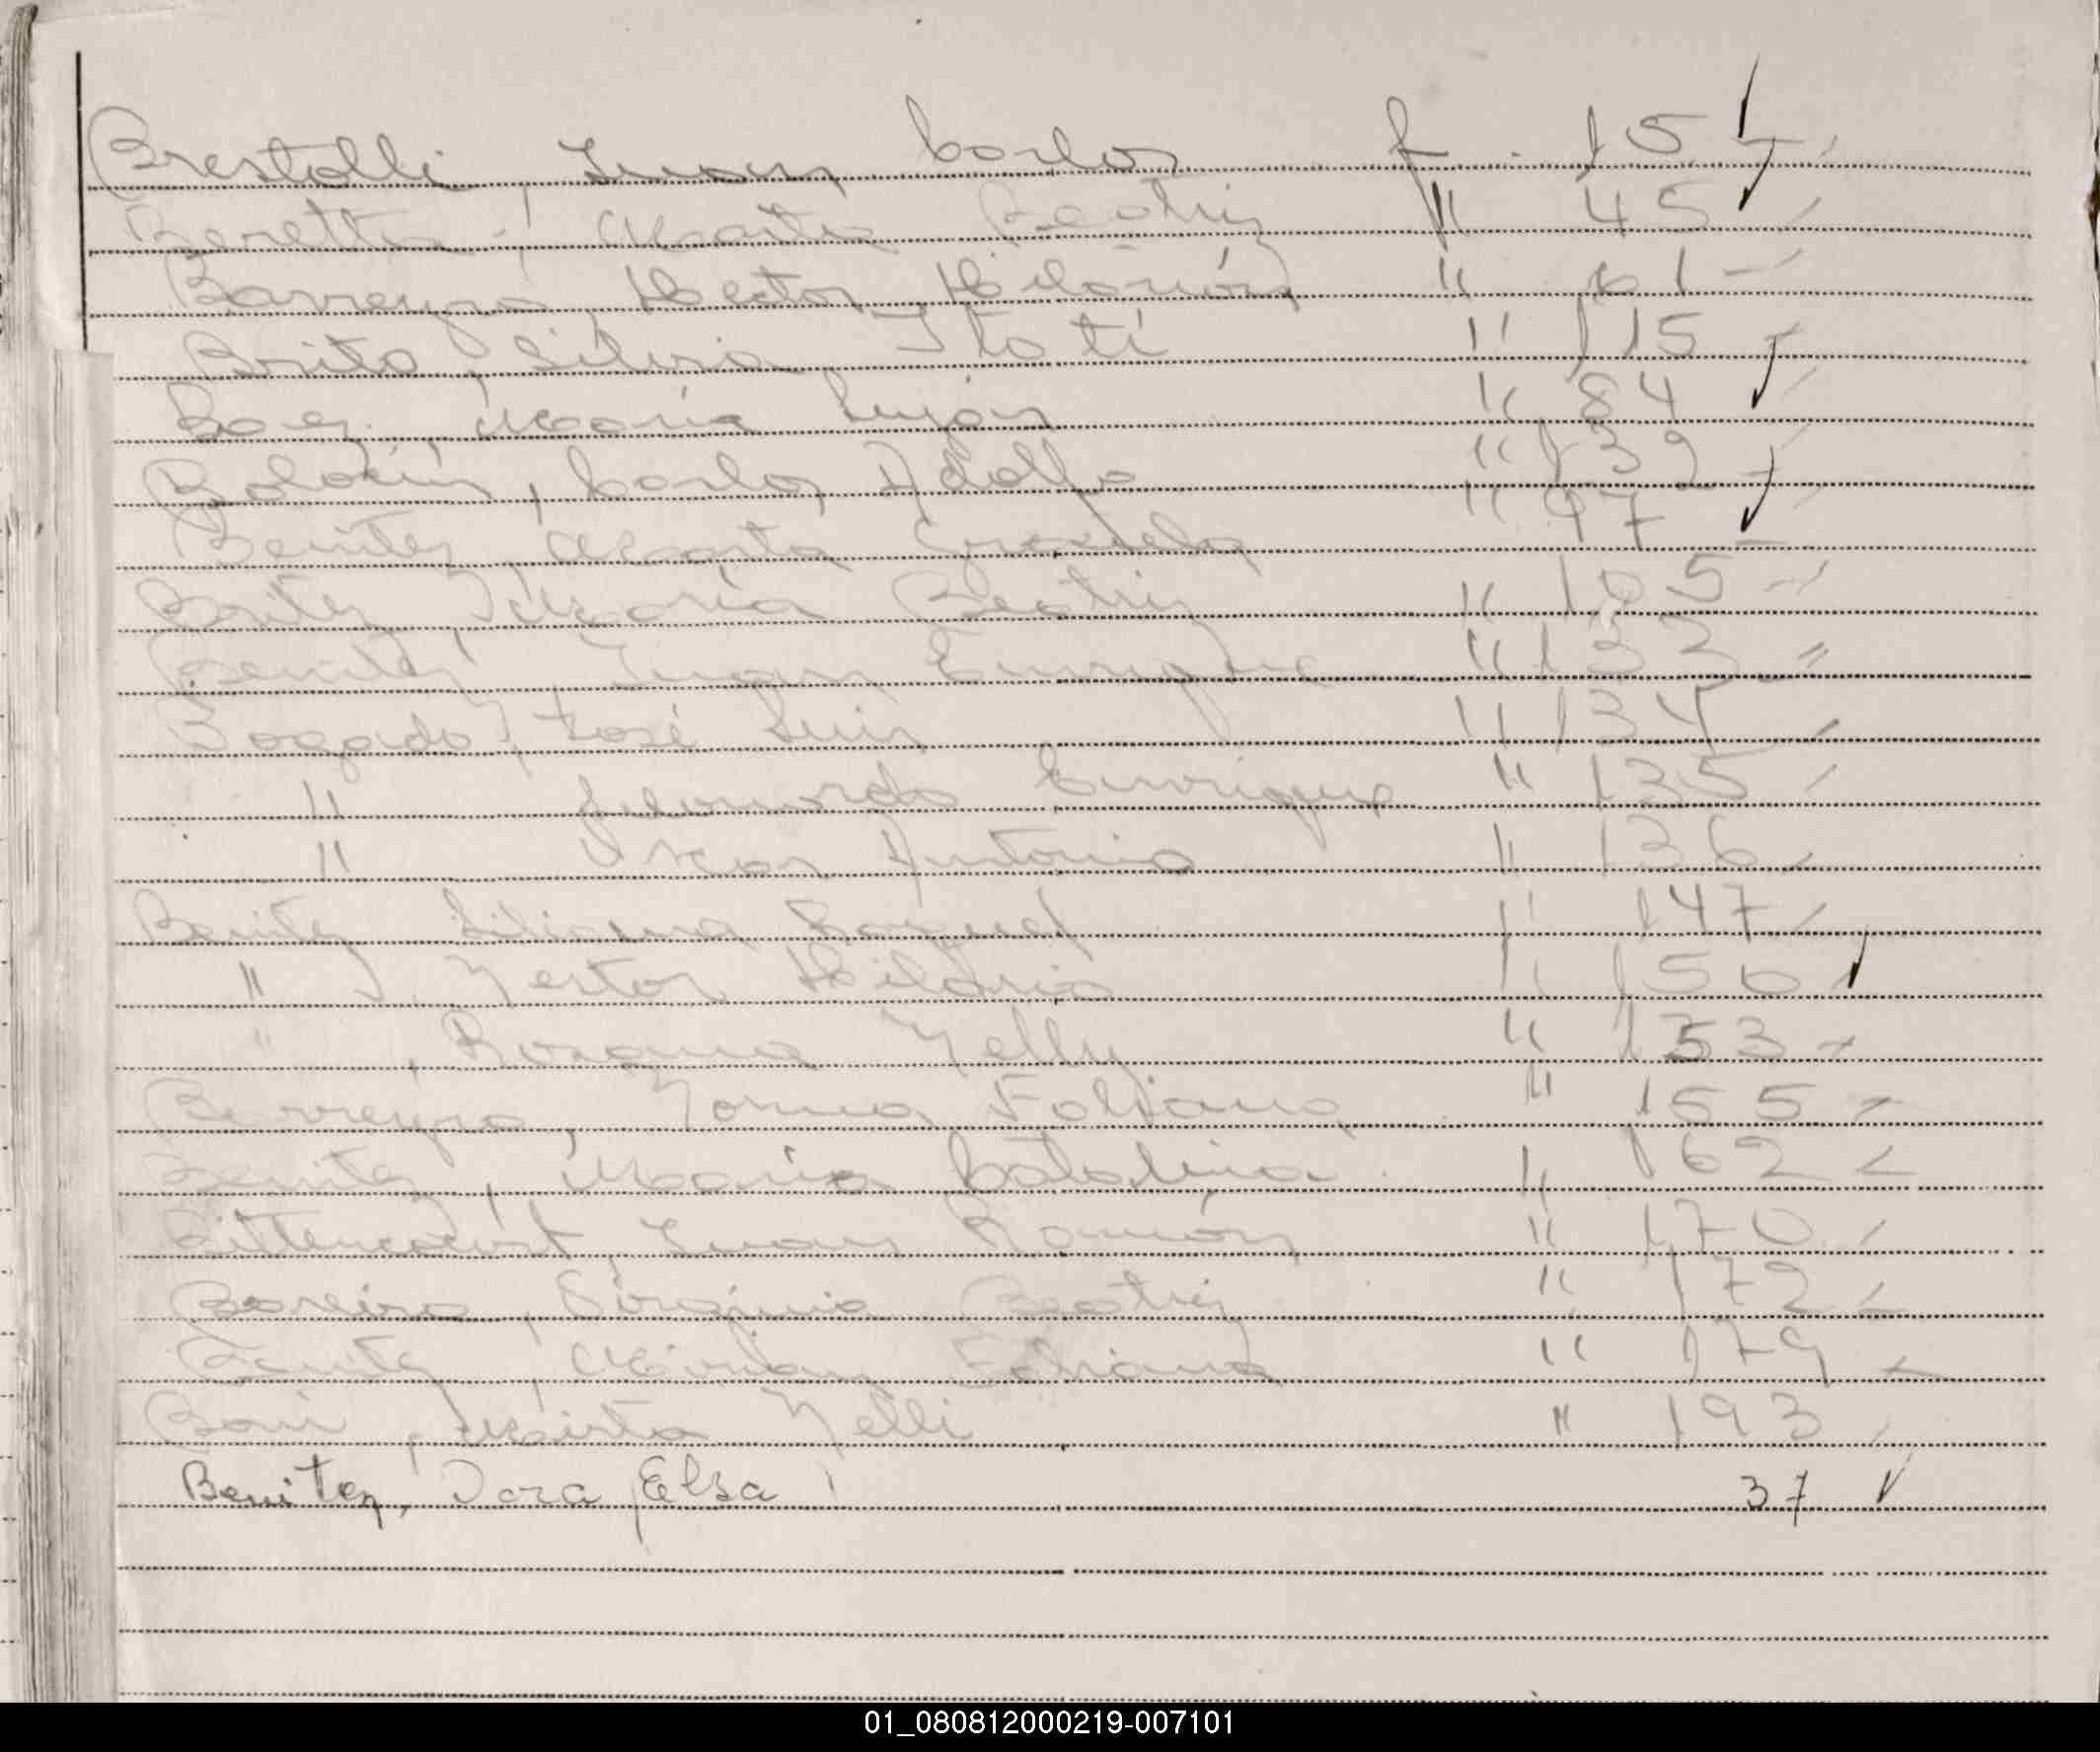 Brestolli, Juan Carlos f. 154
Beretta, Marta Beatriz " 45
Barreyro Hector Hilarión " 61
Brito, Silvia Itatí " 115
Baez, María Luján " 84
Bolocín, Carlos Adolfo " 132
Benitez, Marta Graciela " 97
Britez, María Beatriz " 105
Benitez, Juan Enrique " 133
Bogado, José Luis " 134
" Enrique " 135
" Oscar Antonio " 136
Benitez Liliana Raquel " 147
" , Nestor Hilario " 150
" , Rosana Nelly " 153
Barreyro, Norma " 155
Benitez, María Catalina " 162
Bittencourt, Juan Ramón " 170
Bareiro, Virginia Beatriz " 172
Benitez, Mirian " 179
Boni, Mirta Nelli " 193
Benitez, Dora Elsa 37
01_080812000219-007101